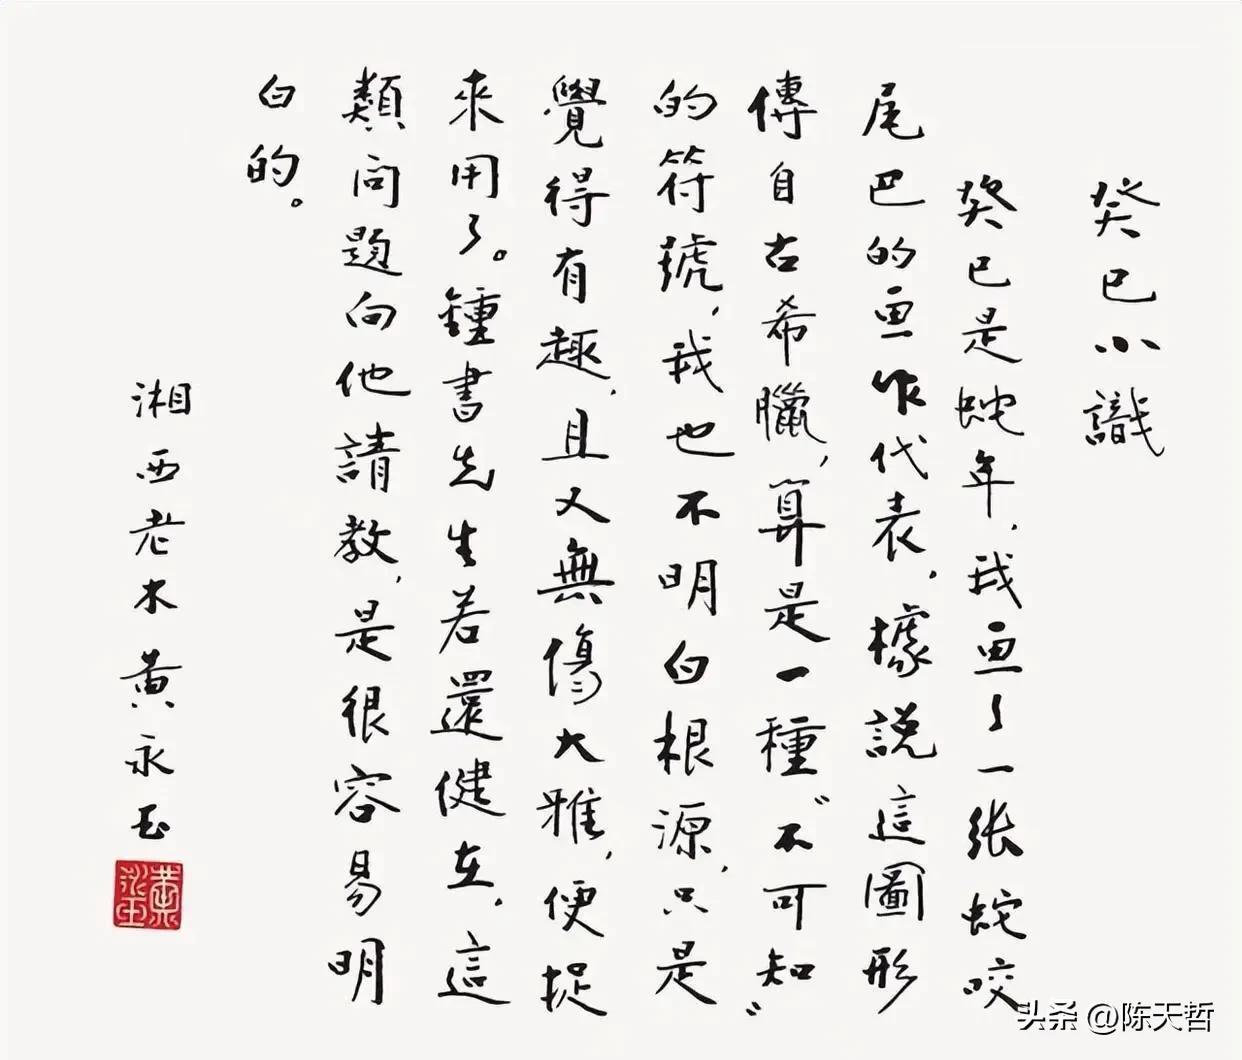 癸巳小識
癸巳是蛇年，我画了一张蛇咬
尾巴的画作代表，據説這圖形
傳自古希臘，算是一種“不可知”
的符號，我也不明白根源，只是
覺得有趣，且又無傷大雅，便捉
来用了。鍾書先生若還健在，這
類问題向他請教，是很容易明
白的。
湘西老木黄永玉
黄永玉
头条 @陈天哲